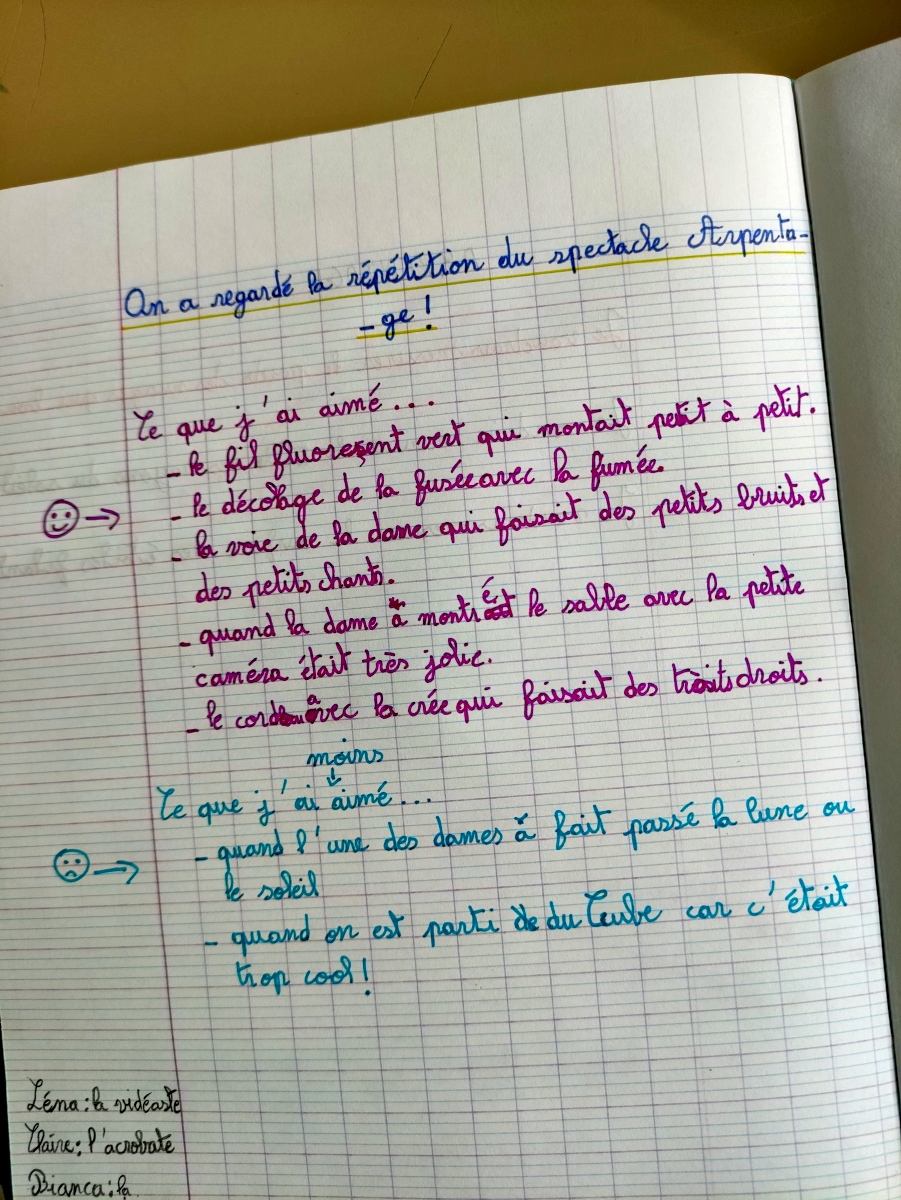 On a regardé la répétition du spectacle Arpenta-
-ge !
Ce que j'ai aimé...
- le fil fluoresçent vert qui montait petit à petit.
- le décolage de la fusée avec la fumée.
- la voie de la dame qui faisait des petits bruits et
des petits chants.
- quand la dame à montré le sable avec la petite
caméra était très jolie.
- le corde avec la crée qui faisait des traits droits.
moins
↓
Ce que j'ai aimé...
- quand l'une des dames à fait passé la lune ou
le soleil
- quand on est parti de du Cube car c'était
trop cool !
Léna : la vidéaste
Claire : l'acrobate
Bianca : la